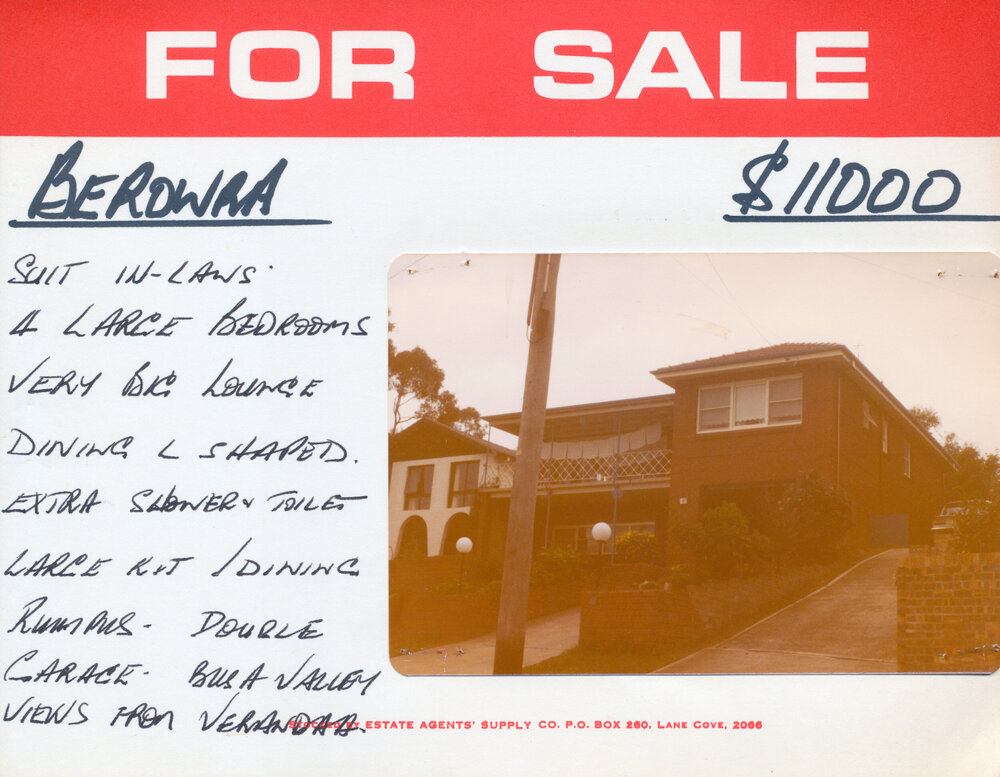 FOR SALE
BEROWRA
$11000
SUIT IN-LAWS.
4 LARGE BEDROOMS
VERY BIG LOUNGE
DINING L SHAPED.
EXTRA SHOWER & TOILET
LARGE KIT / DINING
RUMPUS - DOUBLE
GARAGE - BUSH VALLEY
VIEWS FROM VERANDAA.
STOCKED BY ESTATE AGENTS' SUPPLY CO. P.O. BOX 260, LANE COVE, 2066